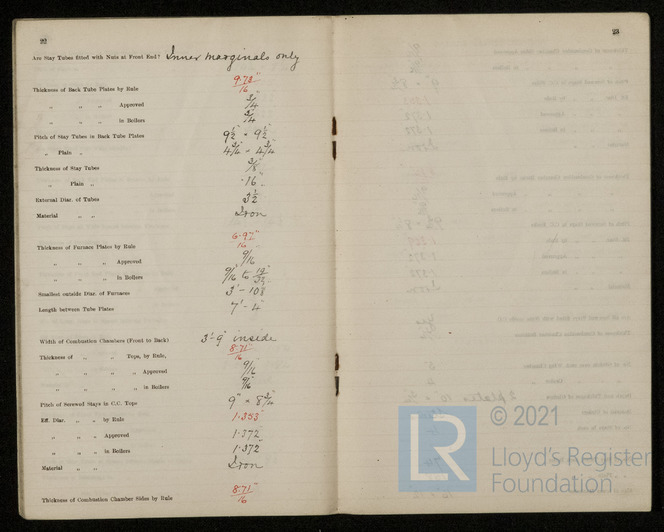 22
Are Stay Tubes fitted with Nuts at Front End? Inner marginals only
Thickness of Back Tube Plates by Rule 9.78"/16
„ „ „ Approved 3/4"
„ „ „ in Boilers 3/4
Pitch of Stay Tubes in Back Tube Plates 9 1/2" × 9 1/2"
„ Plain „ 4 3/4" × 4 3/4"
Thickness of Stay Tubes 3/8"
„ Plain „ .16"
External Diar. of Tubes 3 1/2"
Material „ „ Iron
Thickness of Furnace Plates by Rule
„ „ „ Approved 9/16"
„ „ „ in Boilers
Smallest outside Diar. of Furnaces
Length between Tube Plates 7' - 4"
Width of Combustion Chambers (Front to Back) 3'-9" inside
Thickness of „ „ Tops, by Rule, 8.71"/16
„ „ „ „ Approved 9/16"
„ „ „ „ in Boilers 9/16"
Pitch of Screwed Stays in C.C. Tops 9" × 8 3/4"
Eff. Diar. „ „ by Rule 1.353"
„ „ „ Approved 1.372"
„ „ „ in Boilers 1.372"
Material „ „ Iron
Thickness of Combustion Chamber Sides by Rule 8.71"/16
23
© 2021
LR
Lloyd's Register
Foundation